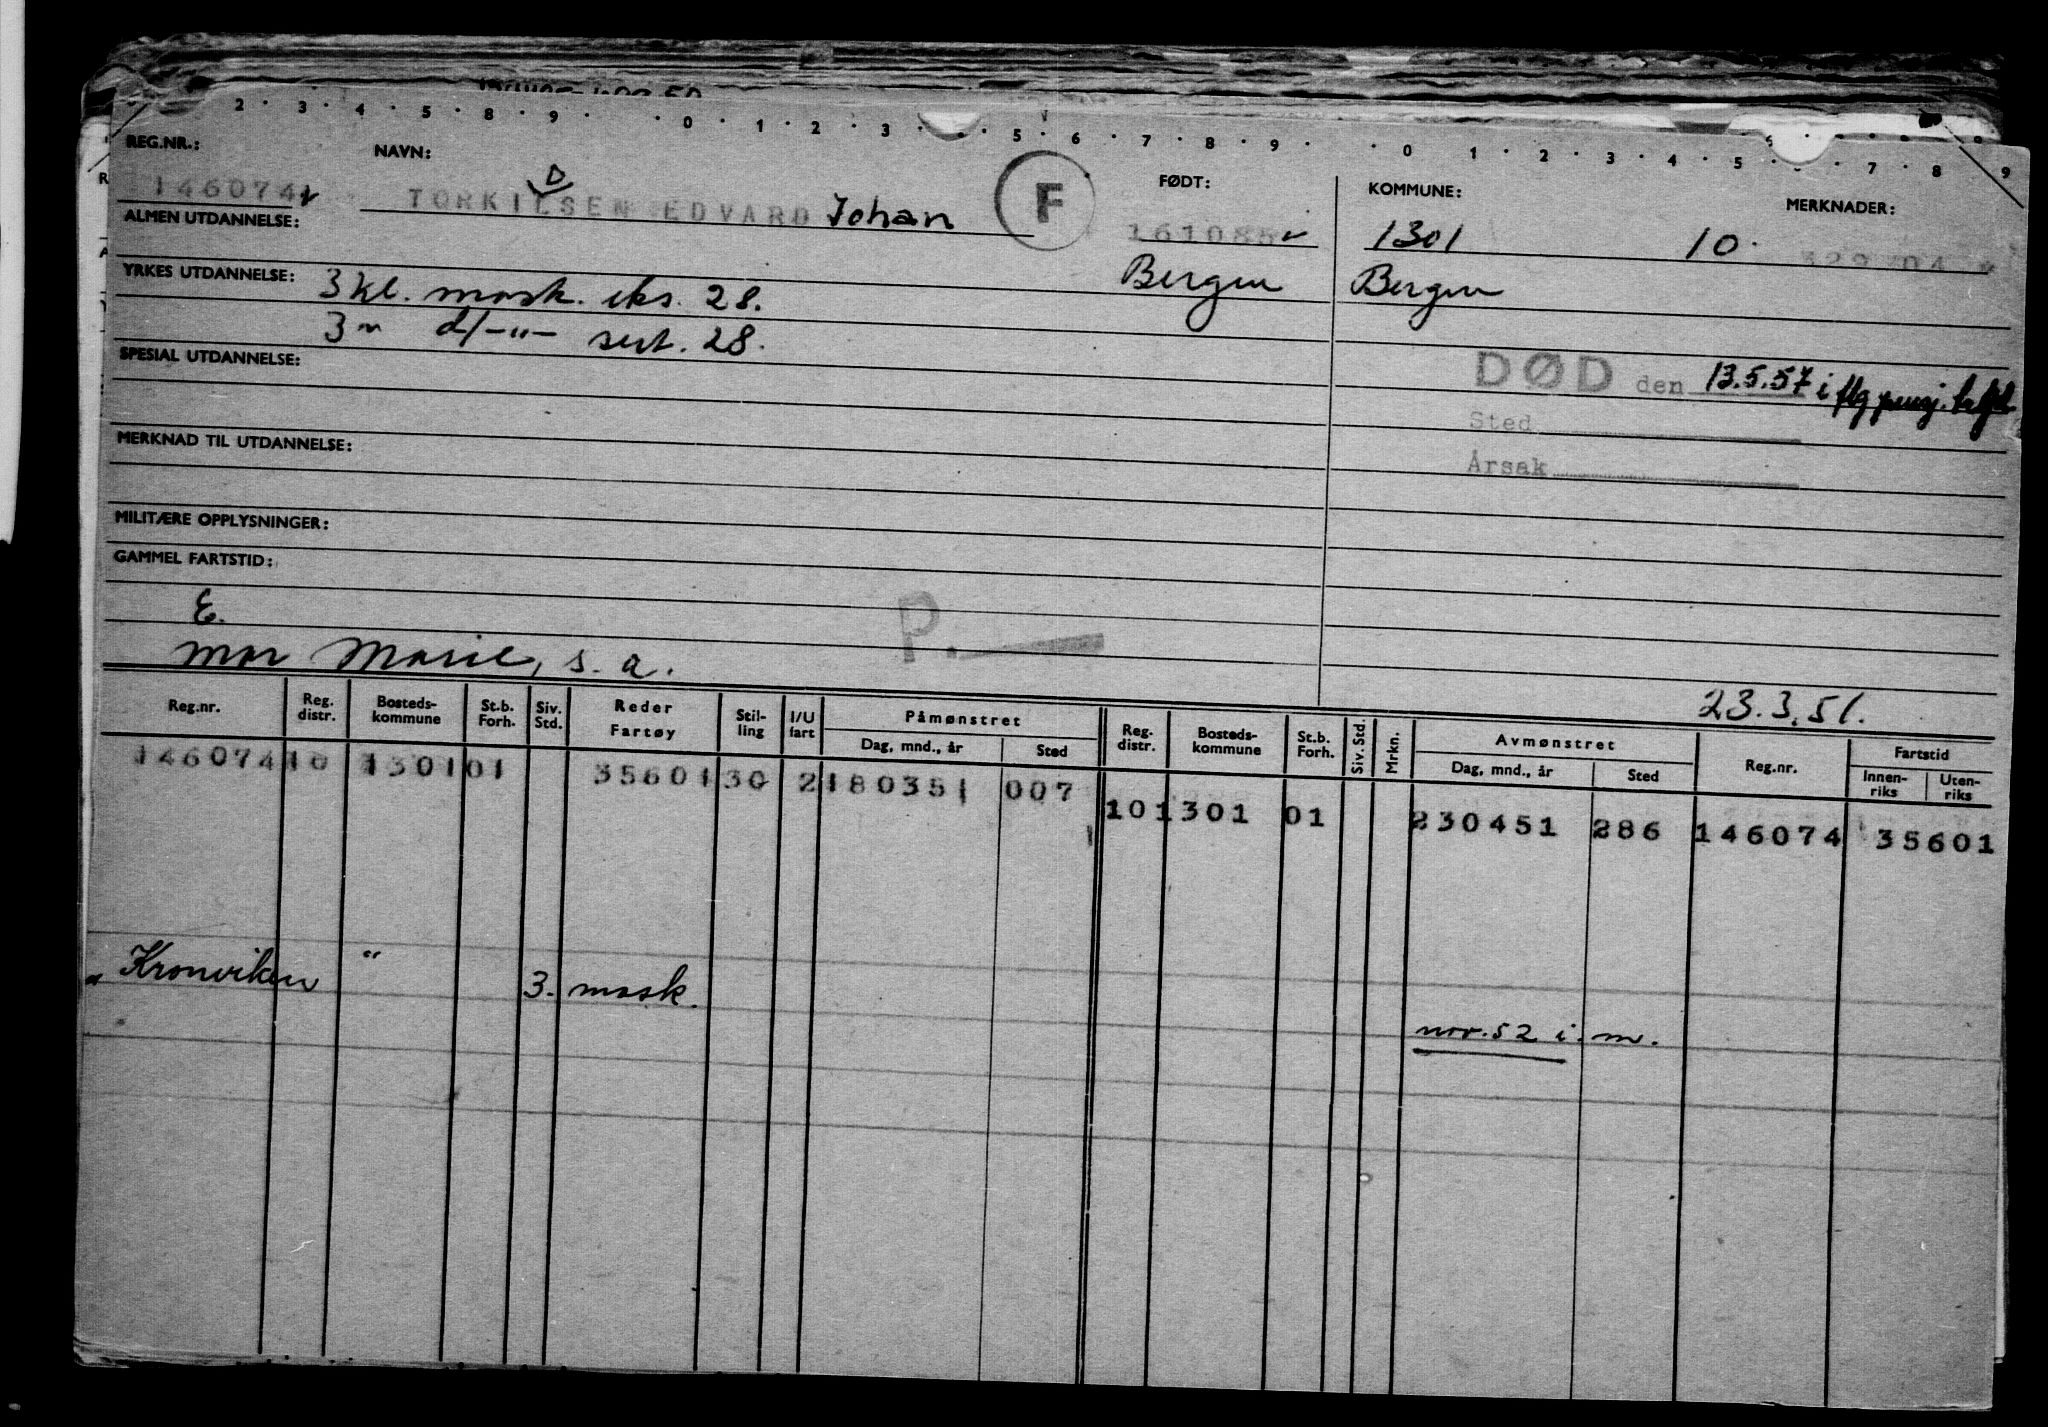 2 · 3 · 4 · 5 · 8 · 9 · · 0 · 1 · 2 · 3 · · 5 · 6 · 7 · 8 · 9 · · 0 · 1 · 2 · 3 · 4 · 5 · · 7 · 8 · 9
REG.NR.: NAVN: FØDT: KOMMUNE: MERKNADER:
146074 TORKILSEN EDVARD Johan F 1301 10.
D
ALMEN UTDANNELSE:
YRKES UTDANNELSE: 3 kl. mask. eks. 28. Bergen Bergen
3 " d/-"- sert. 28.
SPESIAL UTDANNELSE:
DØD den 13.5.57 i flg
Sted
MERKNAD TIL UTDANNELSE:
Årsak
MILITÆRE OPPLYSNINGER:
GAMMEL FARTSTID:
E.
P.
mor Marie, s. a.
23.3.51.
Reg.nr. Reg. distr. Bosteds-kommune St.b. Forh. Siv. Std. Reder Fartøy Stil-ling I/U fart Påmønstret Dag, mnd., år Sted Reg. distr. Bosteds-kommune St.b. Forh. Siv. Std. Mrkn. Avmønstret Dag, mnd., år Sted Reg.nr. Fartstid Innen-riks Uten-riks
146074 10 1301 01 35601 30 2 180351 007 10 1301 01 230451 286 146074 35601
" Kronviken " 3. mask.
nov. 52 i. m.